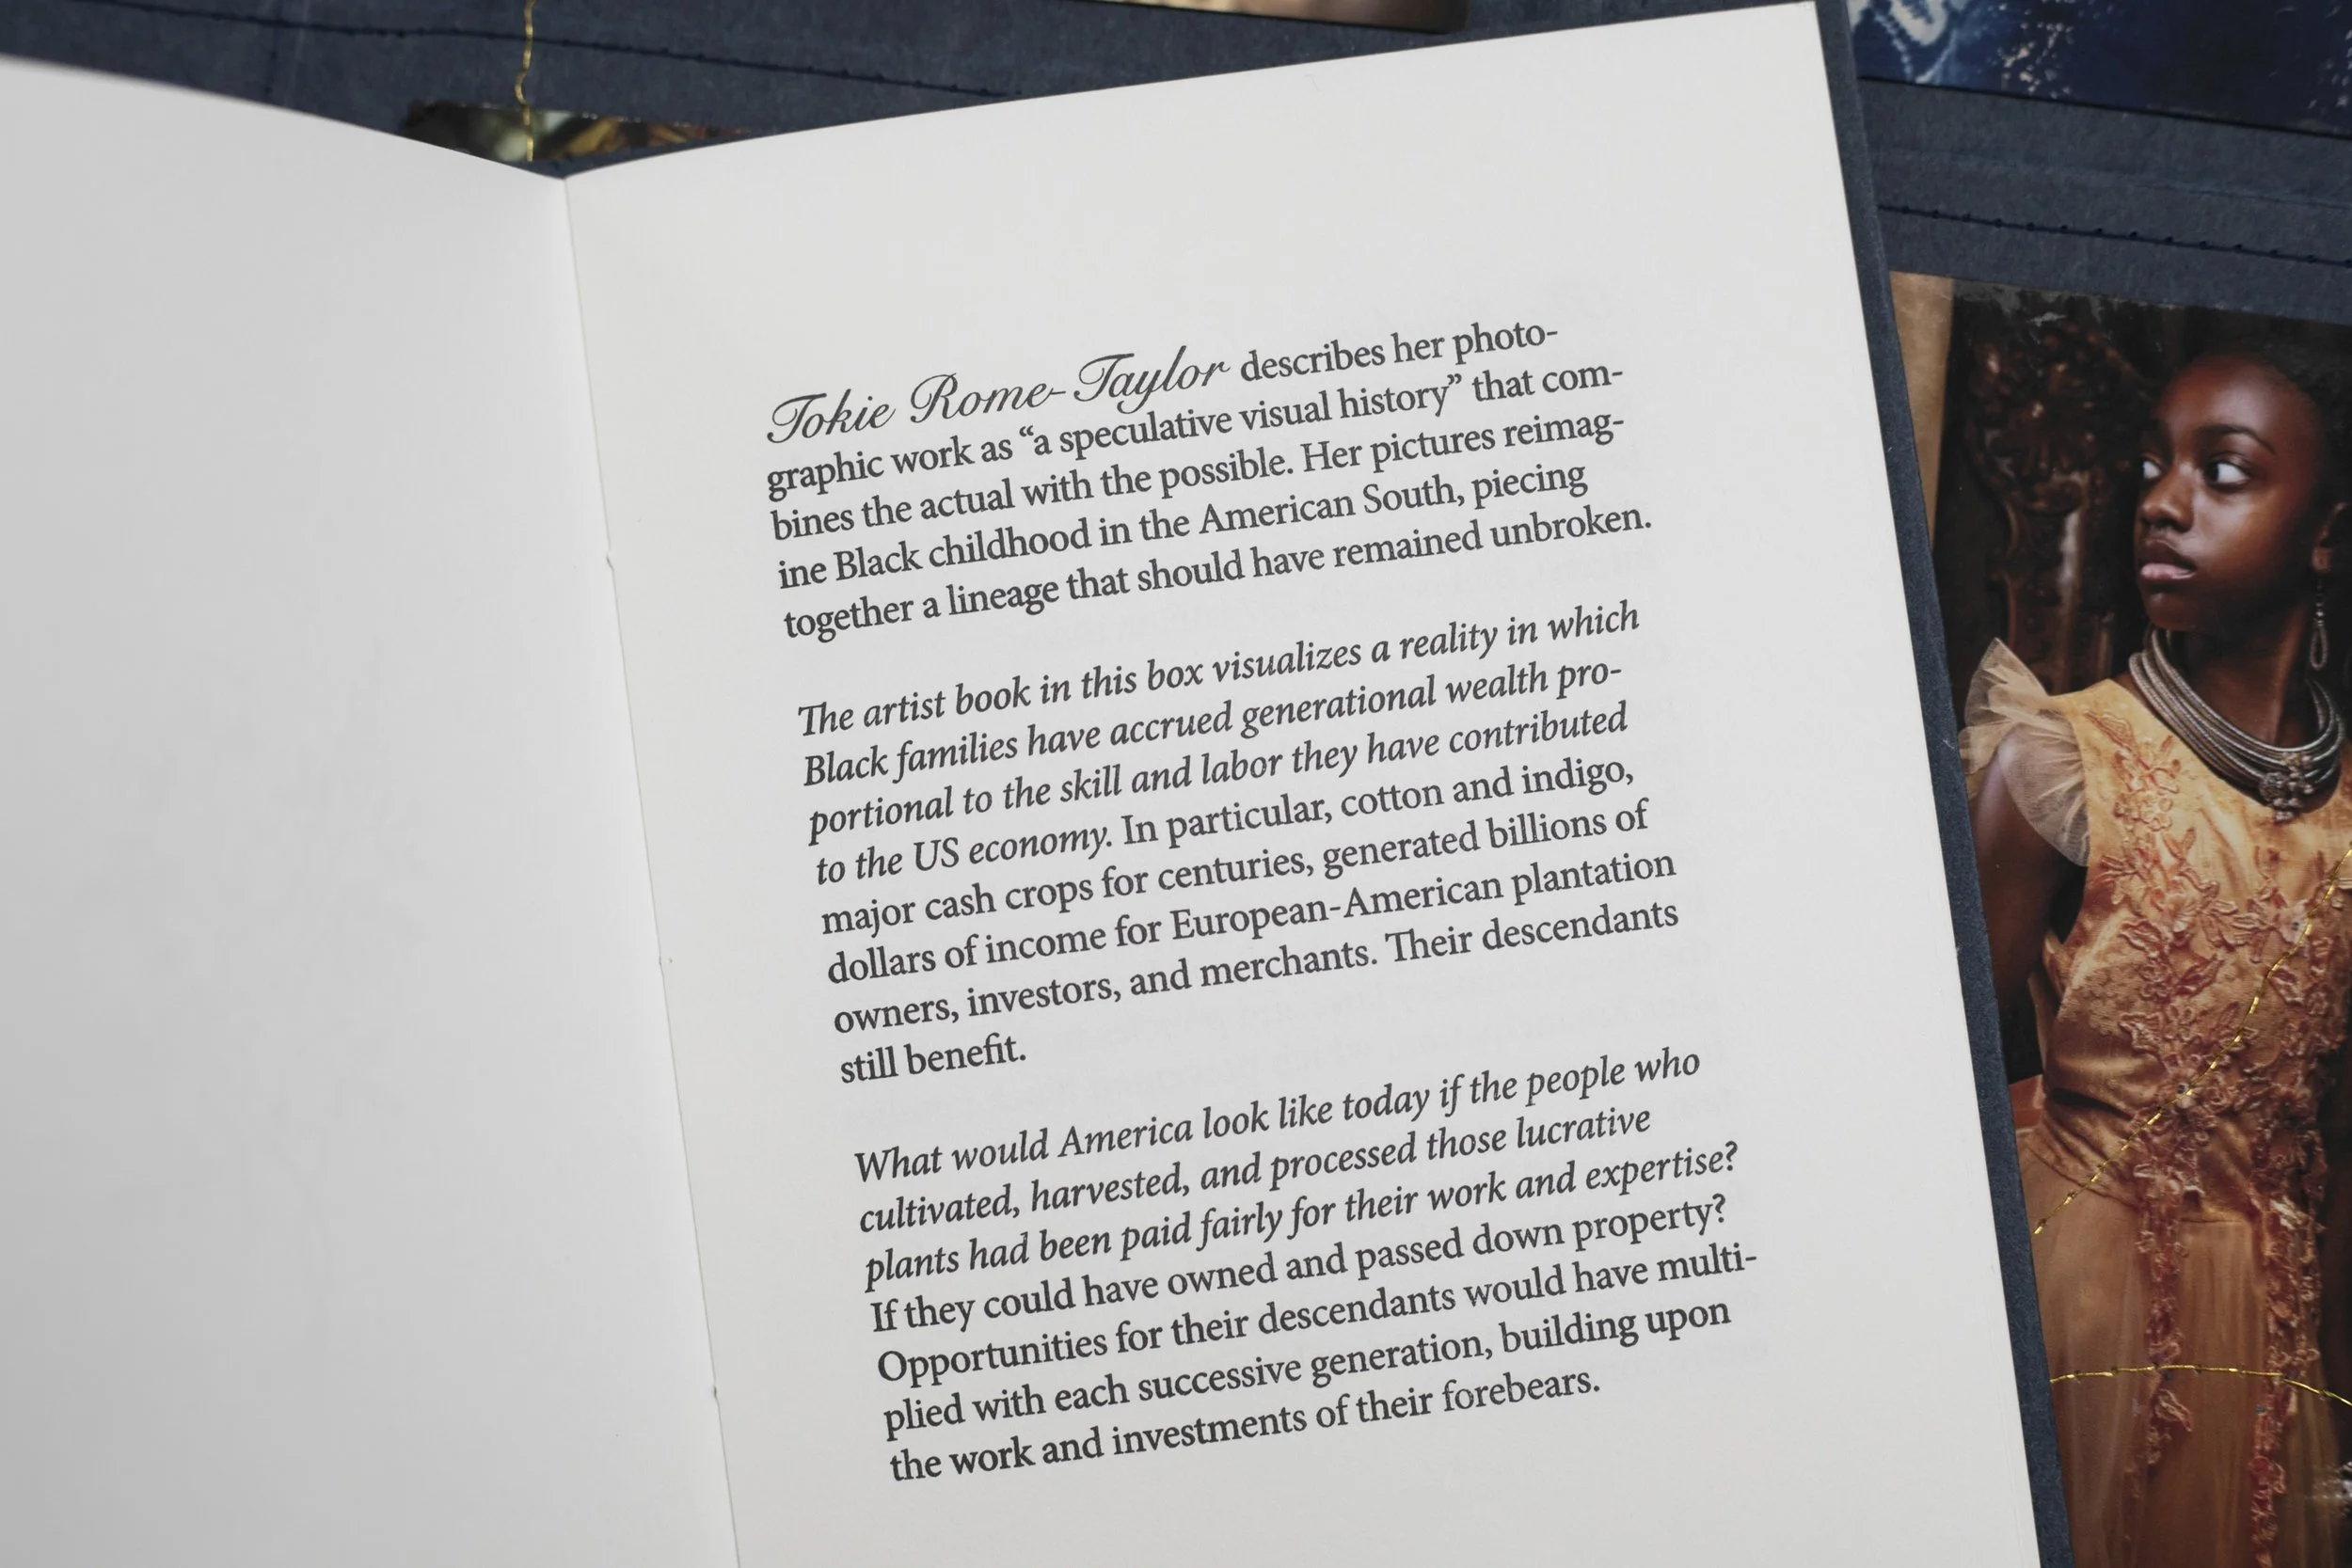 Tokie Rome-Taylor describes her photo-
graphic work as “a speculative visual history” that com-
bines the actual with the possible. Her pictures reimag-
ine Black childhood in the American South, piecing
together a lineage that should have remained unbroken.
The artist book in this box visualizes a reality in which
Black families have accrued generational wealth pro-
portional to the skill and labor they have contributed
to the US economy. In particular, cotton and indigo,
major cash crops for centuries, generated billions of
dollars of income for European-American plantation
owners, investors, and merchants. Their descendants
still benefit.
What would America look like today if the people who
cultivated, harvested, and processed those lucrative
plants had been paid fairly for their work and expertise?
If they could have owned and passed down property?
Opportunities for their descendants would have multi-
plied with each successive generation, building upon
the work and investments of their forebears.